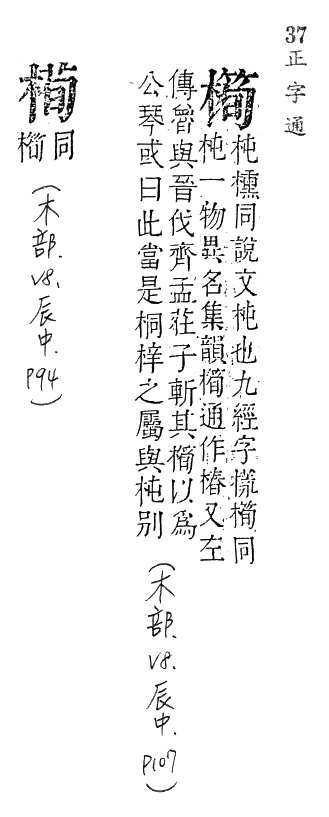 37
正字通
橁
杶櫄同說文杶也九經字㨾橁同
杶一物異名集韻橁通作椿又左
傳魯與晉伐齊孟莊子斬其橁以爲
公琴或曰此當是桐梓之屬與杶別
(木部. v8. 辰中. P107)
栒
同
橁
(木部. v8. 辰中. P94)